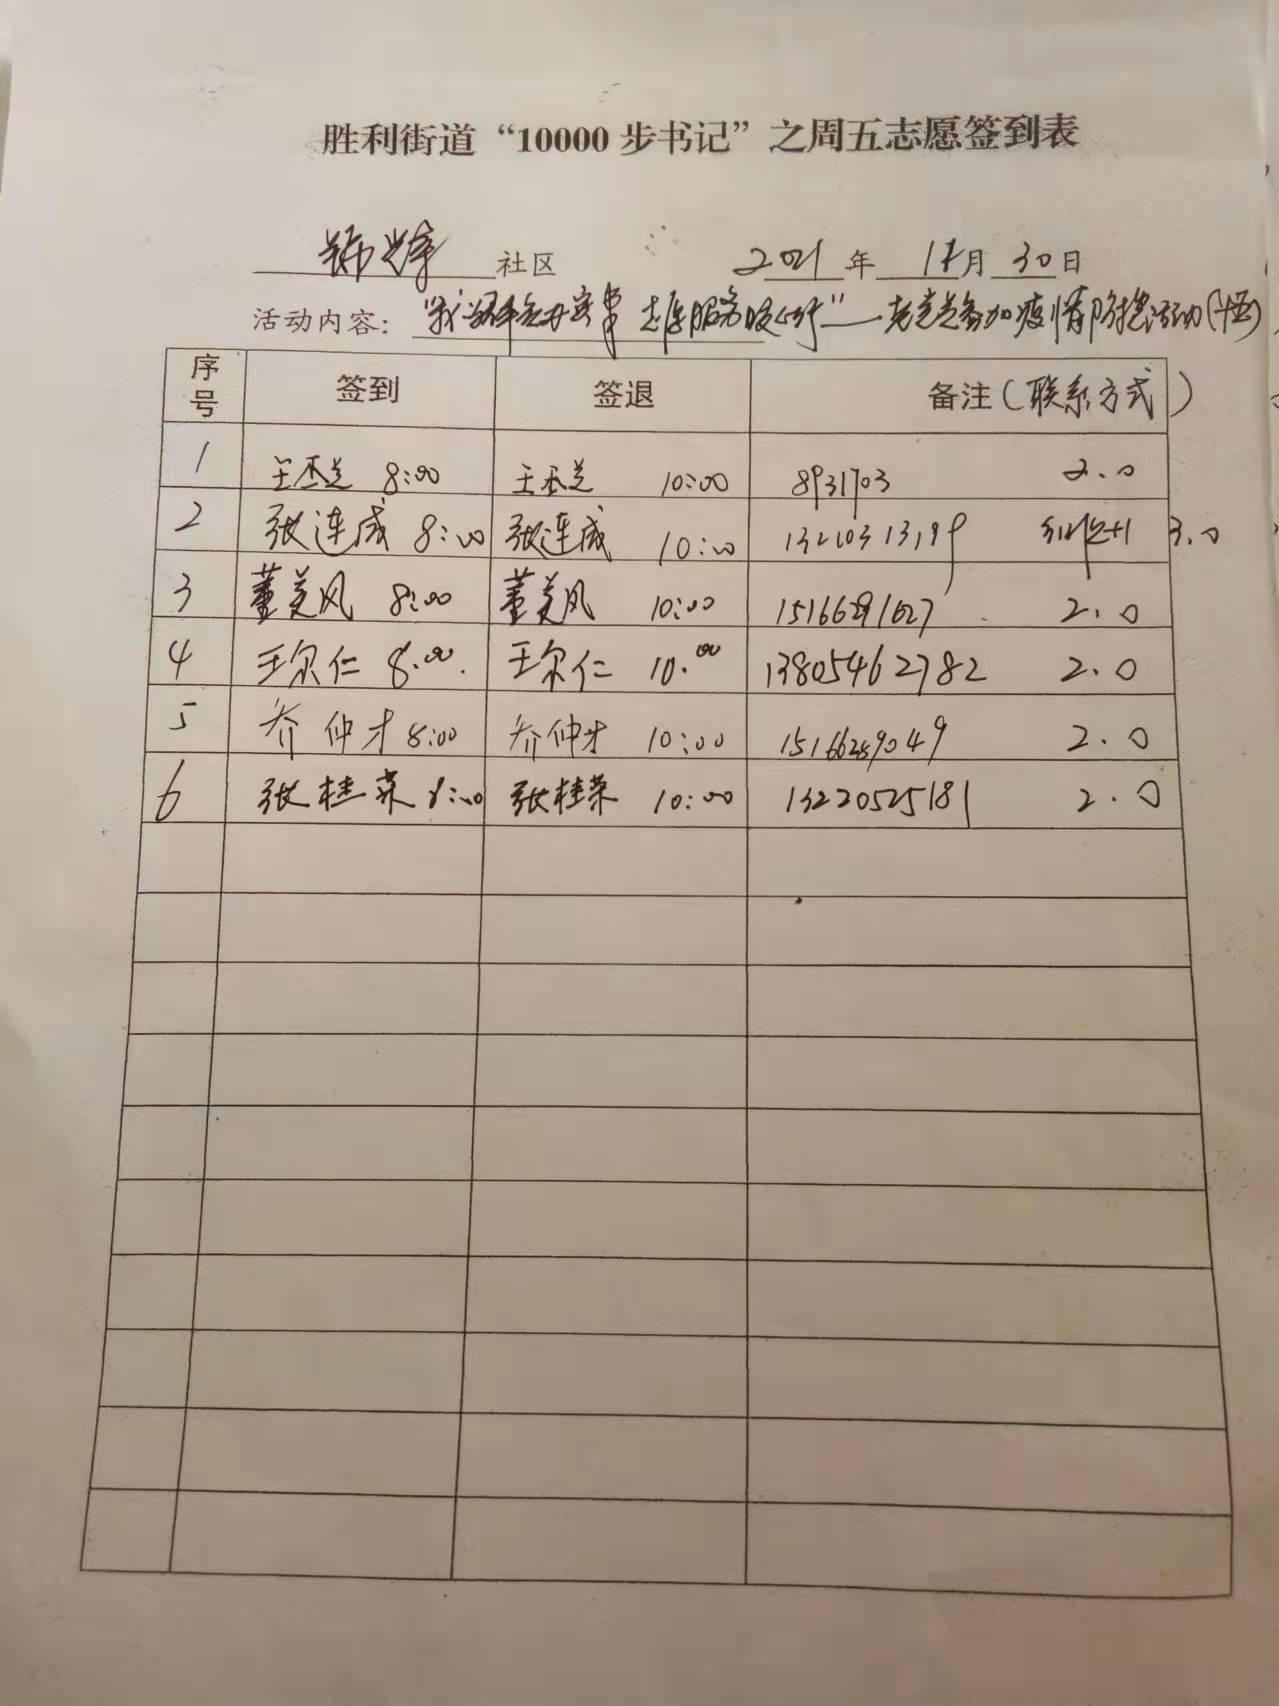 胜利街道“10000步书记”之周五志愿签到表
锦华社区 2021年 月30日
活动内容：“我为群众办实事 志愿服务暖心行”—老党员参加疫情防控活动(十五)
序号 签到 签退 备注(联系方式)
1 王丕兰 8:00 王丕兰 10:00 8931703 2.0
2 张连成 8:00 张连成 10:00 3.0
3 董美风 8:00 董美风 10:00 2.0
4 王尔仁 8:00 王尔仁 10:00 13805462782 2.0
5 乔仲才 8:00 乔仲才 10:00 15166289049 2.0
6 张桂荣 8:00 张桂荣 10:00 13220525181 2.0